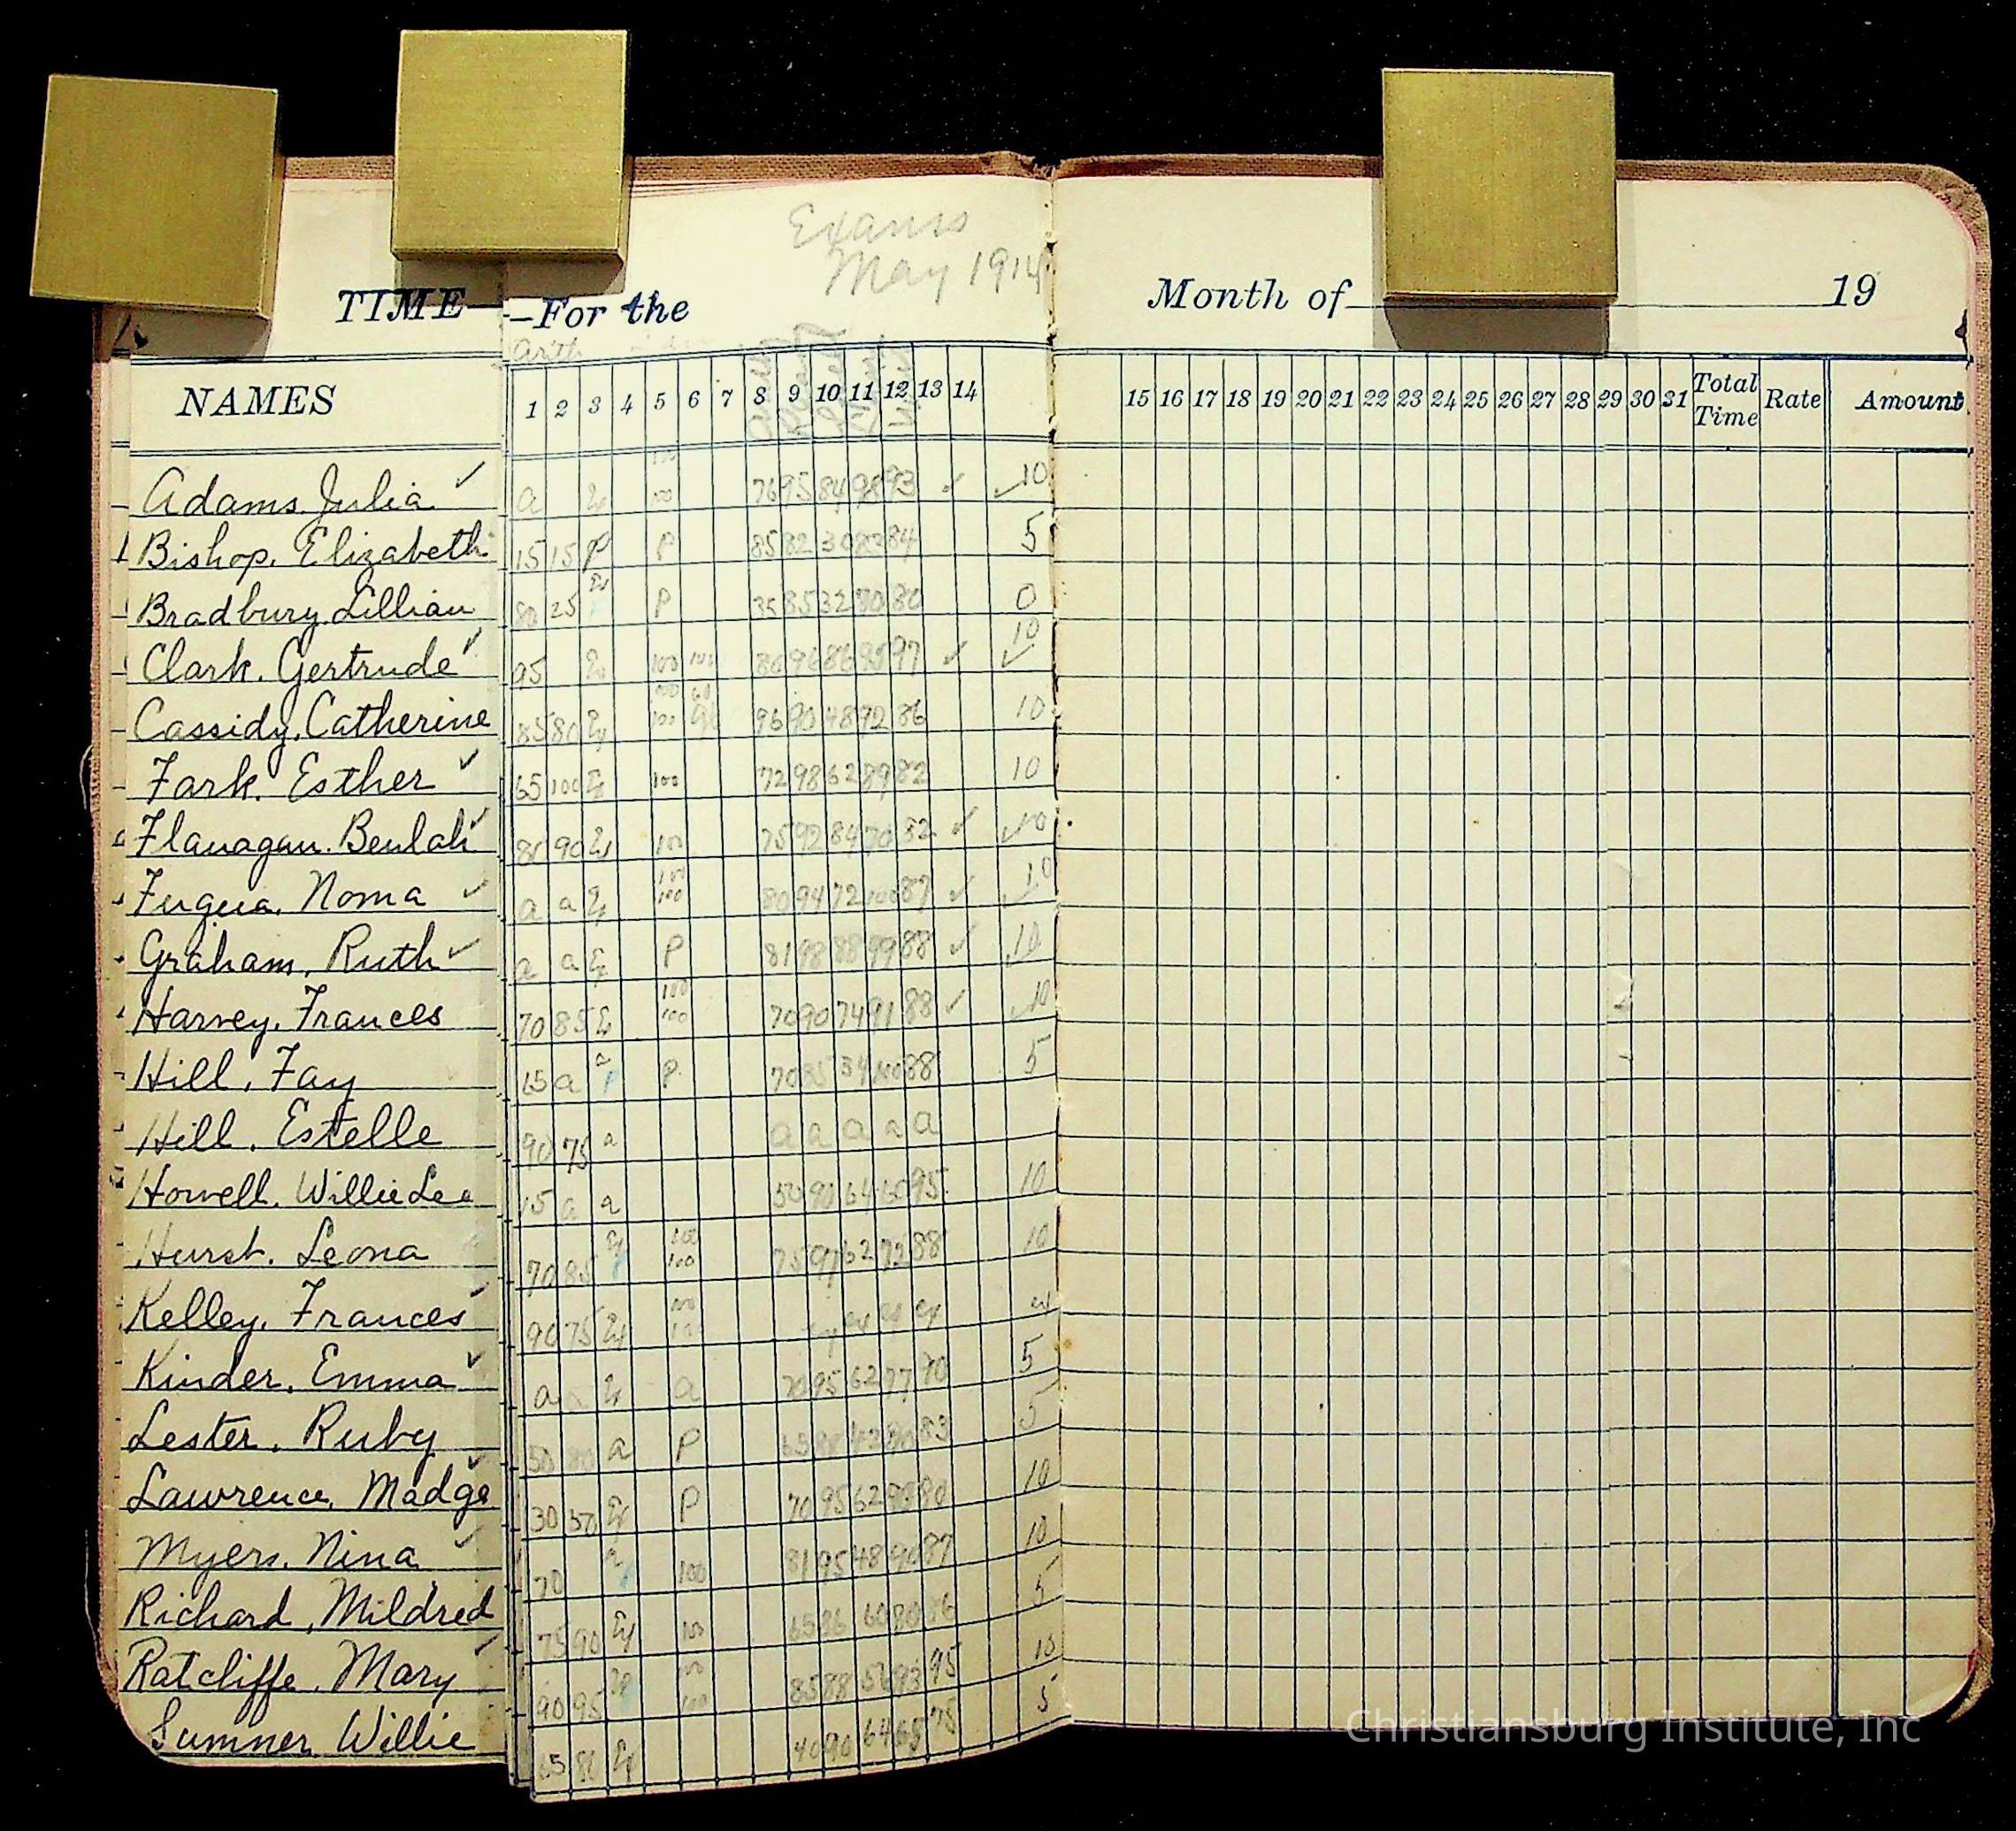 Exams
May 1914
TIME—For the
Month of 19
Arith
NAMES 1 2 3 4 5 6 7 8 9 10 11 12 13 14
15 16 17 18 19 20 21 22 23 24 25 26 27 28 29 30 31 Total Time Rate Amount
Adams, Julia ✓ a 100 76 95 84 98 93 ✓ ✓ 10
Bishop, Elizabeth 15 15 P P 85 82 30 84 5
Bradbury, Lillian 80 25 P 35 85 32 80 80 0
Clark, Gertrude ✓ 95 100 100 80 96 86 95 97 ✓ ✓ 10
Cassidy, Catherine 85 80 100 96 90 48 92 86 10
Fark, Esther ✓ 65 100 100 72 98 62 89 82 10
Flanagan, Beulah ✓ 90 100 75 92 84 70 82 ✓ ✓ 10
Fuqua, Noma ✓ a a 100 100 80 94 72 100 87 ✓ ✓ 10
Graham, Ruth ✓ a a P 81 98 88 99 88 ✓ 10
Harvey, Frances 70 85 100 100 70 90 74 91 88 ✓ ✓ 10
Hill, Fay 15 a P 70 85 34 100 88 5
Hill, Estelle 90 75 a a a a a a
Howell, Willie Lee 15 a a 50 90 64 60 95 10
Hurst, Leona 70 85 100 100 75 97 62 88 10
Kelley, Frances ✓ 90 75 100 100 ex ex ex
Kinder, Emma ✓ a a 70 95 62 97 70 5
Lester, Ruby 50 80 a P 65 88 42 90 83 5
Lawrence, Madge ✓ 30 50 P 70 95 62 90 10
Myers, Nina ✓ 70 100 81 95 48 90 87 10
Richard, Mildred 75 90 100 65 86 60 80 86 5
Ratcliffe, Mary ✓ 90 95 100 100 85 88 56 93 95 10
Sumner, Willie 65 80 40 90 64 65 75 5
Christiansburg Institute, Inc